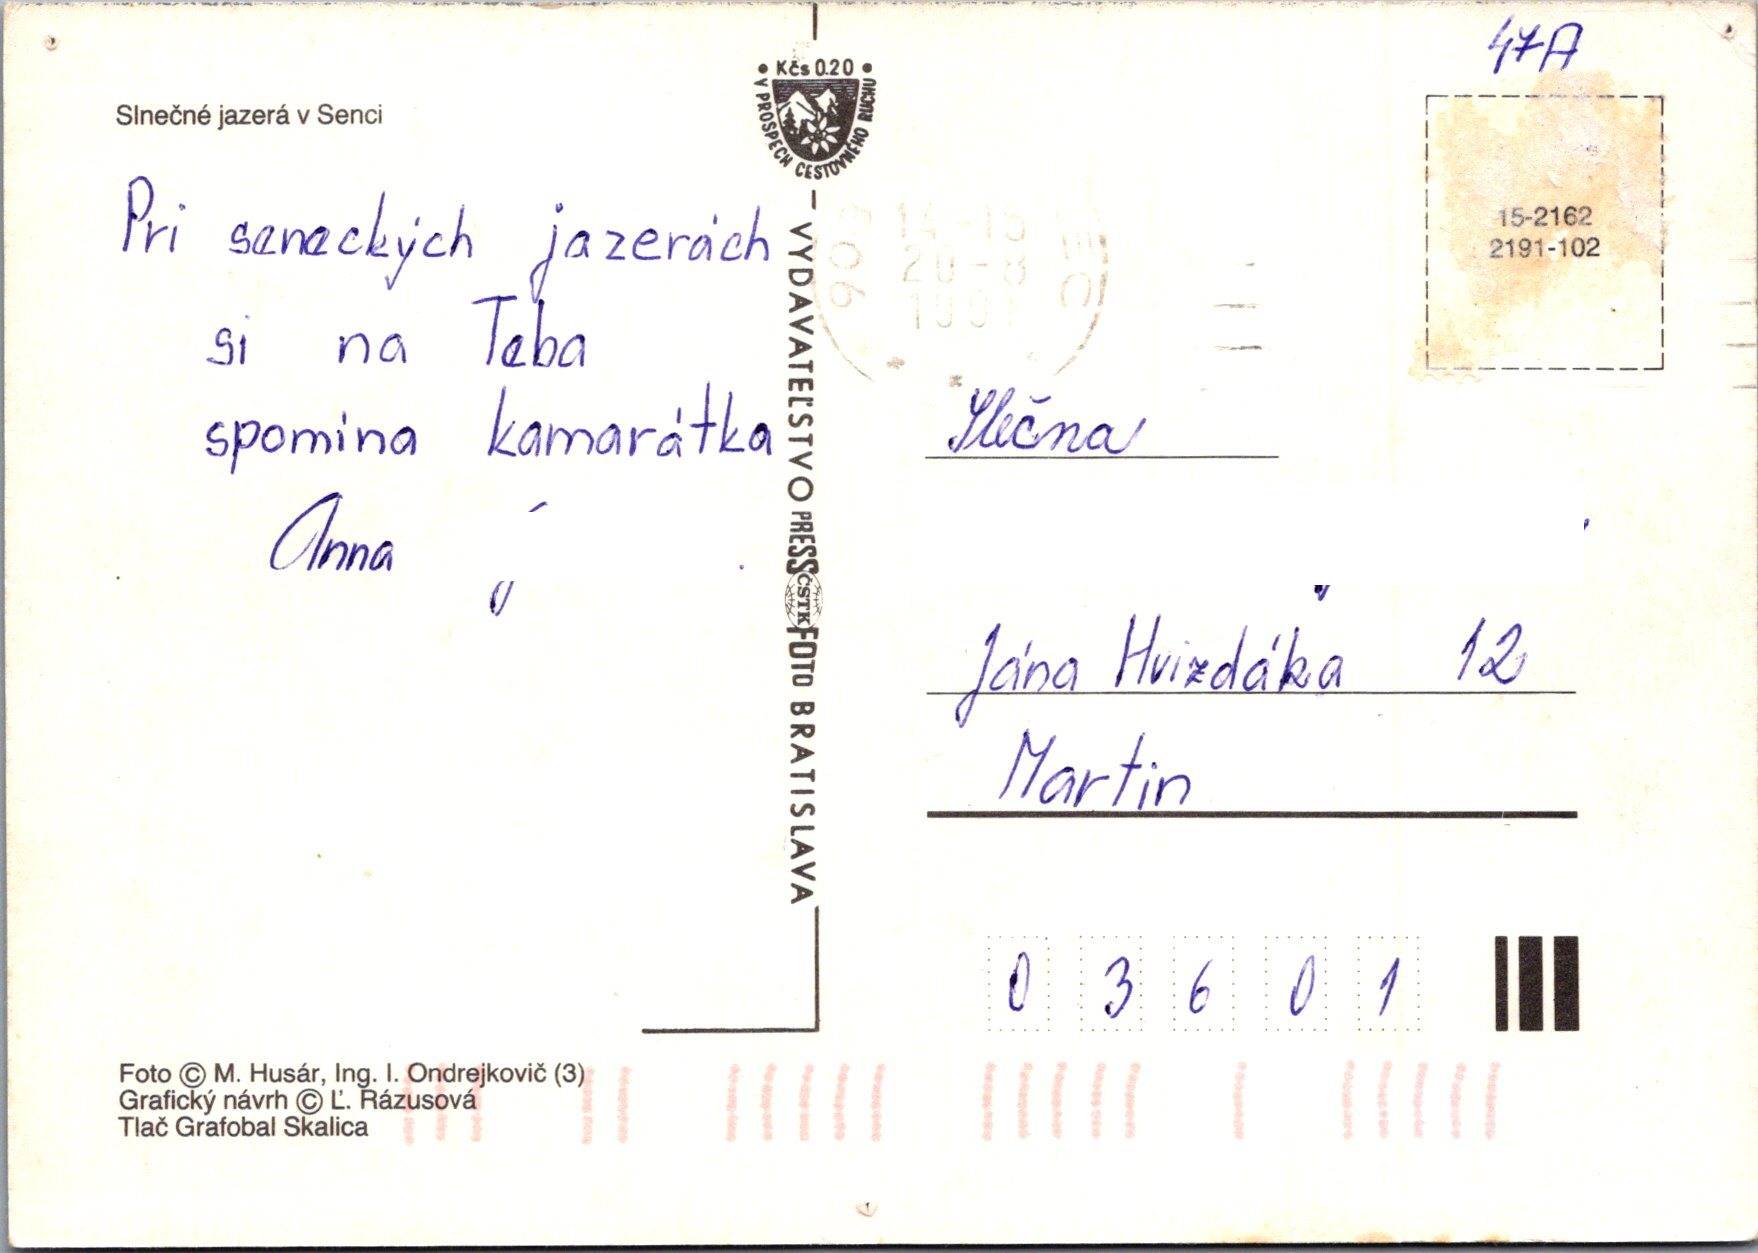 47A
Slnečné jazerá v Senci
Kčs 0.20
V PROSPECH CESTOVNÉHO RUCHU
15-2162
2191-102
20-8
Pri seneckých jazerách
si na Teba
spomína kamarátka
Anna
VYDAVATEĽSTVO PRESSFOTO BRATISLAVA
ČSTK
Slečna
Jána Hvizdáka 12
Martin
03601
Foto © M. Husár, Ing. I. Ondrejkovič (3)
Grafický návrh © Ľ. Rázusová
Tlač Grafobal Skalica